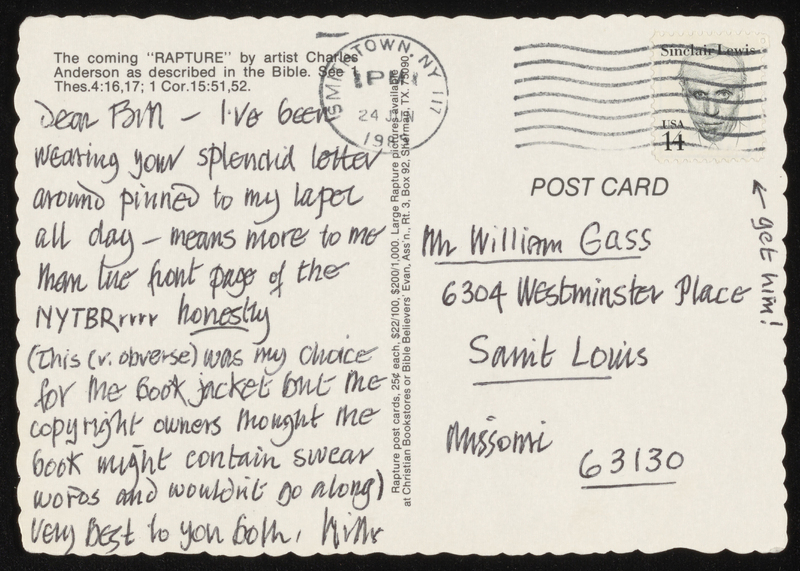 The coming "RAPTURE" by artist Charles
Anderson as described in the Bible. See
Thes.4:16,17; 1 Cor.15:51,52.
Dear Bill – I've been
wearing your splendid letter
around pinned to my lapel
all day – means more to me
than the front page of the
NYTBRrrrr honestly
(This (v. obverse) was my choice
for the book jacket but the
copyright owners thought the
book might contain swear
words and wouldn't go along)
Very best to you both,
Rapture post cards, 25¢ each, $22/100, $200/1,000, Large Rapture pictures available
at Christian Bookstores or Bible Believers' Evan. Ass'n., Rt. 3, Box 92, Sherman, TX. 75090
TOWN, NY 117
PM
24
198
Sinclair Lewis
USA
14
POST CARD
Mr William Gass
6304 Westminster Place
Saint Louis
Missouri
63130
← get him!